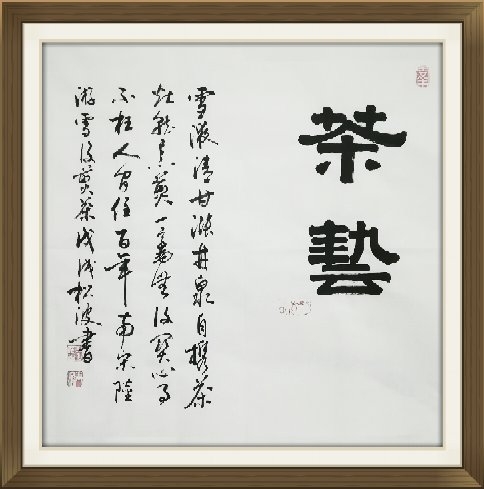 茶藝
雪液清甘漲井泉自携茶
灶就烹煎一毫無復関心事
不枉人间住百年南宋陸
游雪後煎茶戊戌松波書